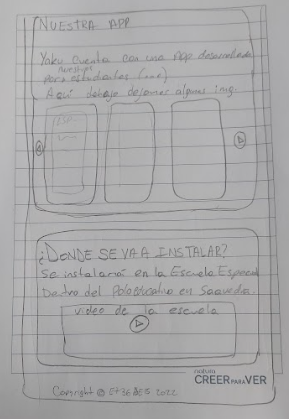 NUESTRA APP
Yaku cuenta con una App desarrollada
nuestros
para estudiantes (
Aquí debajo dejamos algunas img
¿DONDE SE VA A INSTALAR?
Se instalará en la Escuela Especial
Dentro del Polo Educativo en Saavedra
video de la escuela
natura
CREER PARA VER
Copyright © ET36 2022